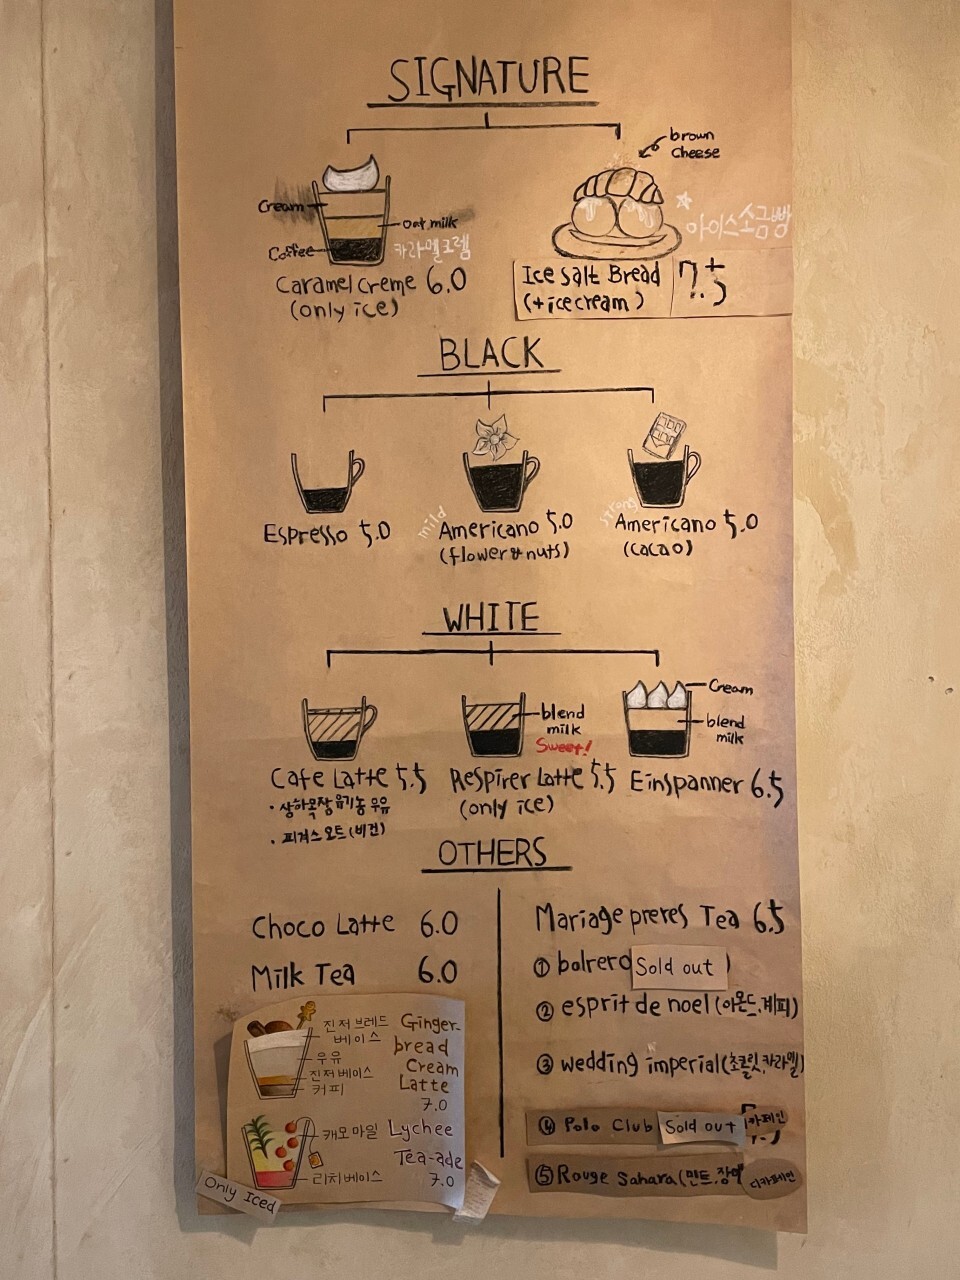 SIGNATURE
brown
cheese
Cream
oat milk
Coffee
카라멜크렘
Caramel Creme 6.0
(only ice)
아이스소금빵
Ice Salt Bread
(+icecream)
7.5
BLACK
Espresso 5.0
mild
Americano 5.0
(flower & nuts)
strong
Americano 5.0
(cacao)
WHITE
Cafe Latte 5.5
· 상하목장 유기농 우유
· 피겨스 오트 (비건)
blend
milk
Sweet!
Respirer Latte 5.5
(only ice)
Cream
blend
milk
Einspanner 6.5
OTHERS
Choco Latte 6.0
Milk Tea 6.0
진저브레드
베이스
우유
진저베이스
커피
Ginger-
bread
Cream
Latte
7.0
캐모마일
리치베이스
Lychee
Tea-ade
7.0
Only Iced
Mariage preres Tea 6.5
① bolrero Sold out )
② esprit de noel (아몬드, 계피)
③ wedding imperial (초콜릿, 카라멜)
④ Polo Club Sold out 카페인
⑤ Rouge Sahara (민트, 장미 디카페인